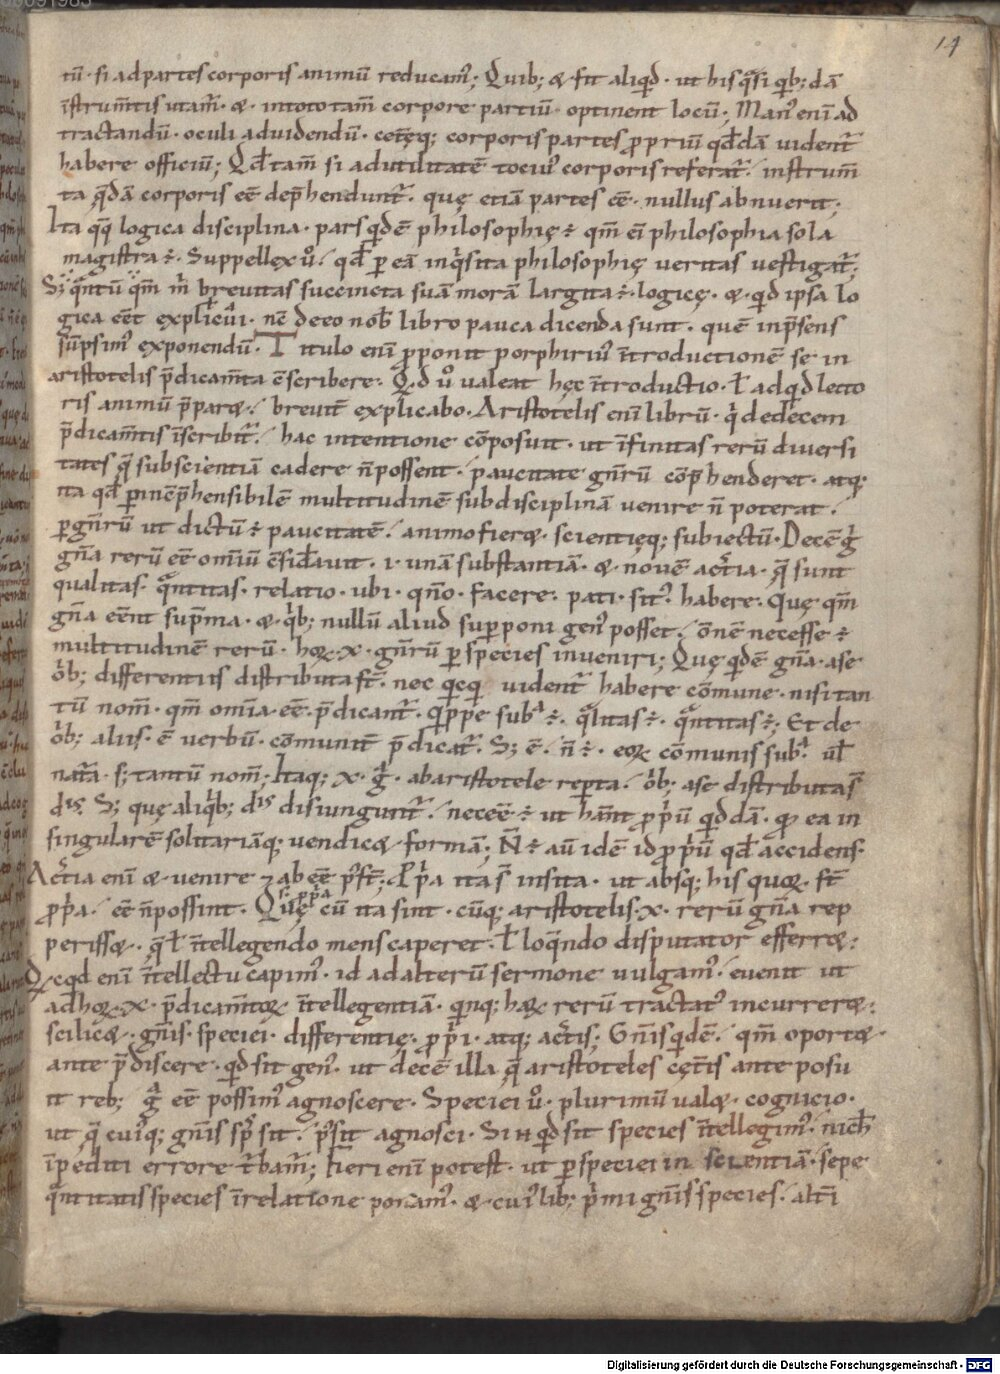 14
tū· si adpartes corporis animū reducam᷒; Quib; & fit aliqd̄· ut his q̄si qb; dā
īstrum̄tis utam̄· & intoto tam̄ corpore partiū optinent locū; Man᷒ eni ad
tractandū· oculi aduidendū· ceteq; corporis partes ꝓpriū qd̄dā uident᷒
habere officiū; Qd̄ tam̄ si adutilitatē tociu᷒ corporis referat᷒/ instrum̄
ta q̄dā corporis eē dep̄hendunt᷒· quę etiā partes eē· nullus abnuerit;
Ita qq̨ logica disciplina· pars qdē philosophię ÷ qm̄ ei philosophia sola
magistra ÷· Suppellex u᷒· qd̄ ꝑ eā inq̄sita philosophię ueritas uestigat᷒;
S; q̄ntū qm̄ m̄ breuitas succincta suā morā largita ÷· logicę· & qd ipsa lo
gica eēt explicui· nc̄ deeo nob᷒ libro pauca dicenda sunt· quē inp̄sens
sūpsim᷒ exponendū· Titulo eni ꝓponit porphiriu᷒ īntroductionē se in
aristotelis p̄dicam̄ta cēscribere; Qd u᷒ ualeat hęc īntroductio· ł adqd lecto
ris animū p̄par&/ breuit̄ explicabo· Aristotelis eni librū· q dedecem
p̄dicam̄tis īscribit᷒/ hac intentione cōposuit· ut īfinitas rerū diuersi
tates q̄ subscientiā cadere n̄ possent/ paucitate gn̄rū cōp̄henderet· atq;
ita qd̄ ꝑ incp̄hensibilē multitudinē subdisciplinā uenire n̄ poterat/
ꝑ gn̄rū ut dictū ÷ paucitatē/ animo fier&· scientięq; subiectū· Decē g
gn̄a rerū eē omiū csid̄auit· i· unā substantiā· & nouē acc̄tia· q̄ sunt
qualitas· q̄ntitas· relatio· ubi· qn̄o· facere· pati· sit᷒· habere· Quę qm̄
gn̄a eēnt sup̄ma· & qb; nullū aliud suꝑponi gen᷒ posset/ om̄nē necesse ÷
multitudinē rerū· hoꝝ x· gn̄rū ꝑ species inueniri; Quę qdē gn̄a· ase
ōb; differentiis distributa st̄· nec qcq̄ uident᷒ habere cōmune· nisi tan
tū nom̄· qm̄ omīa eē p̄dicant᷒· qppe sub᷒a ÷· q̄litas ÷· q̄ntitas ÷; Et de
ōb; aliis· ē uerbū· cōmunit̄ p̄dicat᷒· S; ē· n̄ ÷· eoꝝ cōmunis sub᷒a ul̄
nat᷒a· s; tantū nom̄; Itaq; x· g᷒a· abaristotele reꝑta/ ōb; ase distributa s̄
d̄iis· S; quę aliqb; d̄iis disiungunt᷒/ neceē ÷ ut han̄t ꝓpriū qddā· qđ ea in
singularē solitariāq; uendic& formā; N̄ ÷ au̅ idē id ꝓpriū qd̄ accidens·
Acc̄tia eni & uenire ⁊ abeē p̄st̄; Ꝓpria ita s̄ insita· ut absq; his quoꝝ st̄
ꝓpria· eē n̄ possint· Quę cū ita sint· cūq; aristotelis· x· rerū gn̄a rep
periss&· q̄ ł īntellegendo mens caperet· ł loq̄ndo disputator efferr&;
Qcqd eni īntellectu capim᷒· id adalterū sermone uulgam᷒/ euenit ut
adhoꝝ x· p̄dicam̄toꝝ īntellegentiā· qnq; haꝝ rerū tractat᷒ incurrer&;
scilic&· gn̄is· speciei· differentię· ꝓprii· atq; acc̄tis; Gn̄is qdē/ qm̄ oport&·
ante p̄discere· qd sit gen᷒· ut decē illa q̄ aristoteles cęt̄is ante posu
it reb; g᷒a eē possim᷒ agnoscere· Speciei u᷒· plurimū ual& cognicio·
ut q̄ cui᷒q; gn̄is sp̄s sit/ p᷒sit agnosci· Si n̄ qd sit species īntellegim᷒/ nich̄
īpediti errore t᷒bam̄; Fieri eni potest· ut ꝑ speciei in scientiā· sępe
q̄ntitatis species īrelatione ponam᷒· & cui᷒lib; p᷒mi gn̄is species/ alt̄i
Digitalisierung gefördert durch die Deutsche Forschungsgemeinschaft - DFG